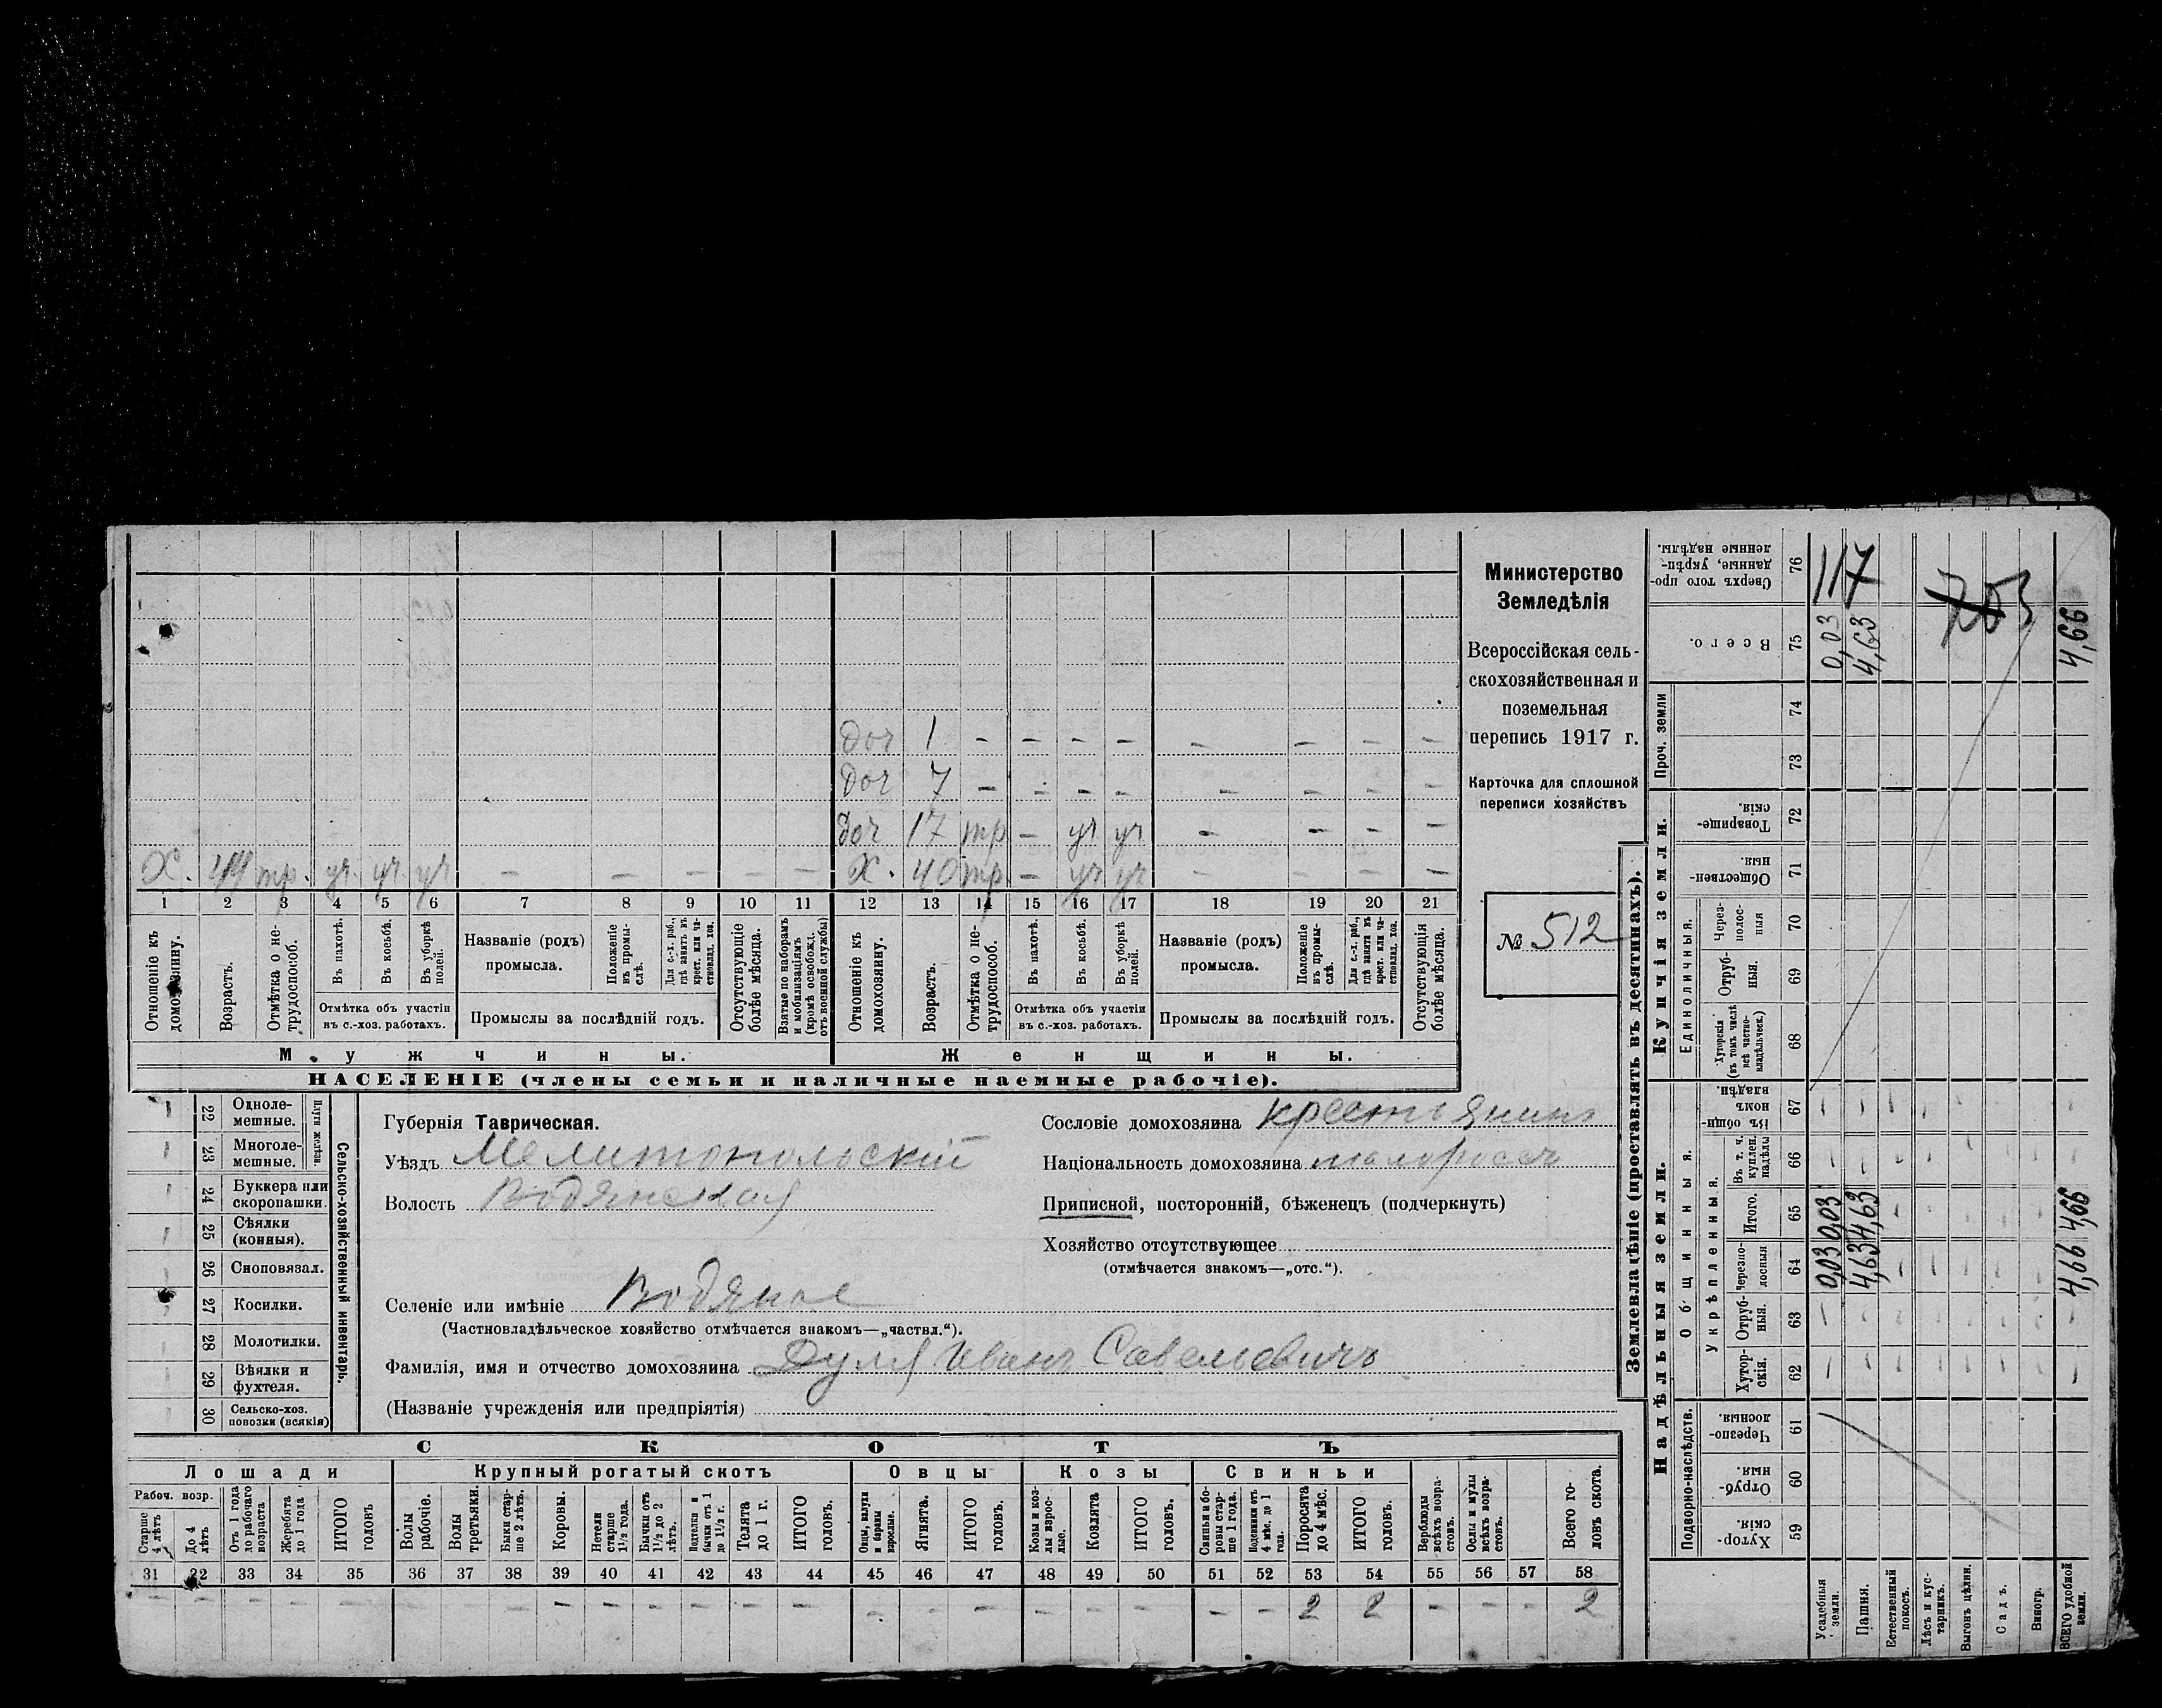 доч 1 - - - - - - - -
доч 7 - - - - - - - -
доч 17 тр - уч уч - - - -
Х. 44 тр. уч. уч. уч - - - - - Х. 40 тр. - уч уч - - - -
1 2 3 4 5 6 7 8 9 10 11 12 13 14 15 16 17 18 19 20 21
Отношеніе къ домохозяину.
Возрастъ.
Отмѣтка о нетрудоспособ.
Въ пахотѣ.
Въ косьбѣ.
Въ уборкѣ полей.
Отмѣтка объ участіи
въ с.-хоз. работахъ.
Названіе (родъ)
промысла.
Положеніе въ промыслѣ.
Для с.-х. раб., гдѣ занятъ въ крест. или частновлад. хоз.
Промыслы за послѣдній годъ.
Отсутствующіе болѣе мѣсяца.
Взятые по наборамъ и мобилизаціямъ (кромѣ освобожд. отъ военной службы)
Отношеніе къ домохозяину.
Возрастъ.
Отмѣтка о нетрудоспособ.
Въ пахотѣ.
Въ косьбѣ.
Въ уборкѣ полей.
Отмѣтка объ участіи
въ с.-хоз. работахъ.
Названіе (родъ)
промысла.
Положеніе въ промыслѣ.
Для с.-х. раб., гдѣ занята въ крест. или частновлад. хоз.
Промыслы за послѣдній годъ.
Отсутствующія болѣе мѣсяца.
Мужчины. Женщины.
НАСЕЛЕНІЕ (члены семьи и наличные наемные рабочіе).
Министерство
Земледѣлія
Всероссійская сель-
скохозяйственная и
поземельная
перепись 1917 г.
Карточка для сплошной
переписи хозяйствъ
№ 512
Сельско-хозяйственный инвентарь.
Плуги желѣзн.
22 Одноле-
мешные.
23 Многоле-
мешные.
24 Буккера или
скоропашки.
25 Сѣялки
(конныя).
26 Сноповязал.
27 Косилки.
28 Молотилки.
29 Вѣялки и
фухтеля.
30 Сельско-хоз.
повозки (всякія)
Губернія Таврическая.
Уѣздъ Мелитопольскій
Волость Водянская
Селеніе или имѣніе Водяное
(Частновладѣльческое хозяйство отмѣчается знакомъ—„частвл.“).
Фамилія, имя и отчество домохозяина Дуля Иванъ Савельевичъ
(Названіе учрежденія или предпріятія)
Сословіе домохозяина крестьянинъ
Національность домохозяина малороссъ
Приписной, посторонній, бѣженецъ (подчеркнуть)
Хозяйство отсутствующее
(отмѣчается знакомъ—„отс.“).
СКОТЪ
Лошади Крупный рогатый скотъ Овцы Козы Свиньи
Рабоч. возр.
Старше 4 лѣтъ
До 4 лѣтъ
Отъ 1 года до рабочаго возраста
Жеребята до 1 года
ИТОГО головъ
Волы рабочіе.
Волы третьяки.
Быки старше 2 лѣтъ.
Коровы.
Нетели старше 1½ года.
Бычки отъ 1½ до 2 лѣтъ.
Подтелки и бычки отъ 1 до 1½ г.
Телята до 1 г.
ИТОГО головъ.
Овцы, валухи и бараны взрослые.
Ягнята.
ИТОГО головъ.
Козы и козлы взрослые.
Козлята
ИТОГО головъ.
Свиньи и боровы старше 1 года.
Подсвинки отъ 4 мѣс. до 1 года.
Поросята до 4 мѣс.
ИТОГО головъ.
Верблюды всѣхъ возрастовъ.
Ослы и мулы всѣхъ возрастовъ.
Всего головъ скота.
31 32 33 34 35 36 37 38 39 40 41 42 43 44 45 46 47 48 49 50 51 52 53 54 55 56 57 58
- - - - - - - - - - - - - - - - - - - 2 2 - - - 2
Землевладѣніе (проставлять въ десятинахъ).
Надѣльныя земли. Купчія земли. Проч. земли
Подворно-наслѣдств.
Общинныя.
Укрѣпленныя.
Единоличныя.
Хуторскія. 59
Отрубныя. 60
Черезполосныя. 61
Хуторскія. 62
Отрубныя. 63
Черезполосныя 64
Итого. 65
Въ т. ч. куплен. надѣлы 66
Въ общинномъ владѣн. 67
Хуторскія (въ томъ числѣ всѣ частновладѣльческ.) 68
Отрубныя. 69
Черезполосныя 70
Общественныя. 71
Товарищескія. 72
73
74
Всего. 75
Сверхъ того проданные, укрѣпленные надѣлы. 76
Усадебныя земли. 0,03 0,03 0,03
Пашня. 4,63 4,63 4,63
Естественный покосъ.
Лѣсъ и кустарникъ.
Выгонъ цѣлин.
Садъ.
Виногр.
ВСЕГО удобной земли. 4,66 4,66 4,66
117